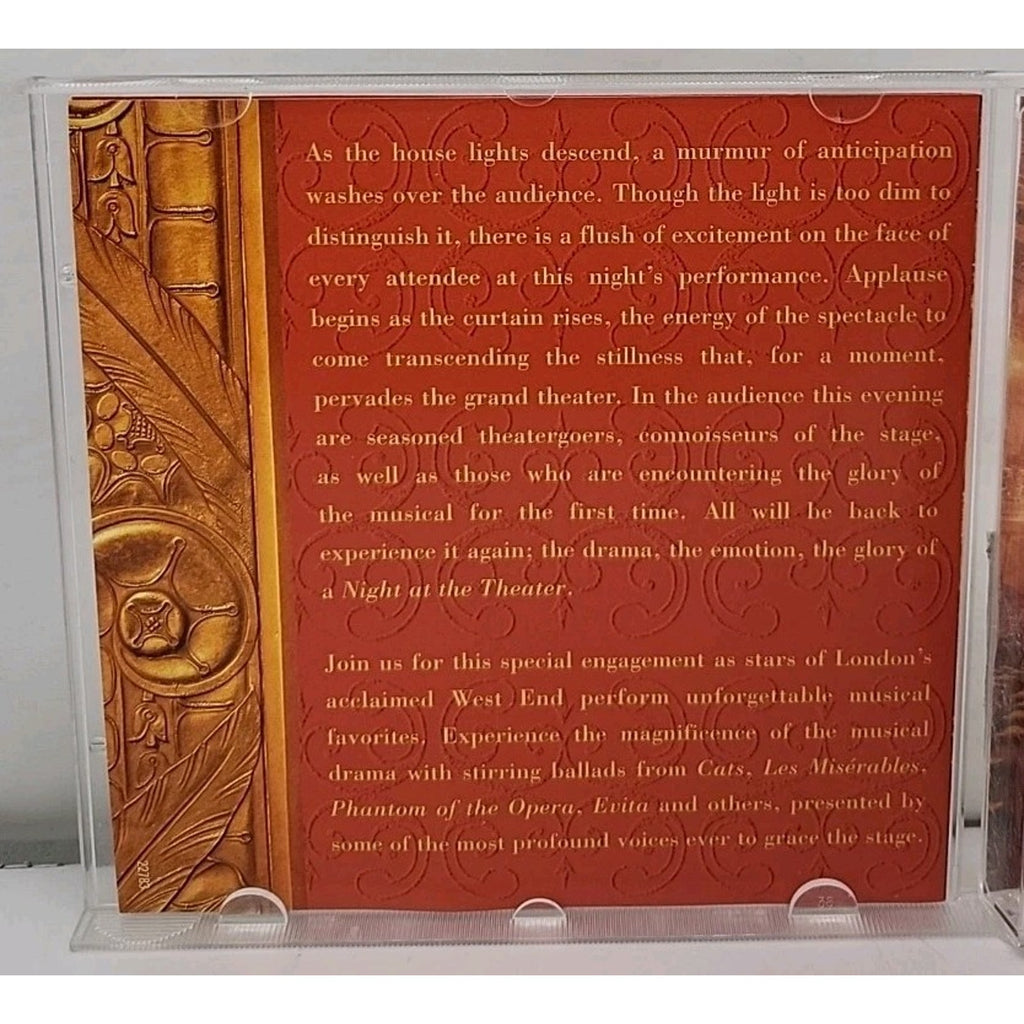 As the house lights descend, a murmur of anticipation
washes over the audience. Though the light is too dim to
distinguish it, there is a flush of excitement on the face of
every attendee at this night's performance. Applause
begins as the curtain rises, the energy of the spectacle to
come transcending the stillness that, for a moment,
pervades the grand theater. In the audience this evening
are seasoned theatergoers, connoisseurs of the stage,
as well as those who are encountering the glory of
the musical for the first time. All will be back to
experience it again; the drama, the emotion, the glory of
a Night at the Theater.
Join us for this special engagement as stars of London's
acclaimed West End perform unforgettable musical
favorites. Experience the magnificence of the musical
drama with stirring ballads from Cats, Les Misérables,
Phantom of the Opera, Evita and others, presented by
some of the most profound voices ever to grace the stage.
22783